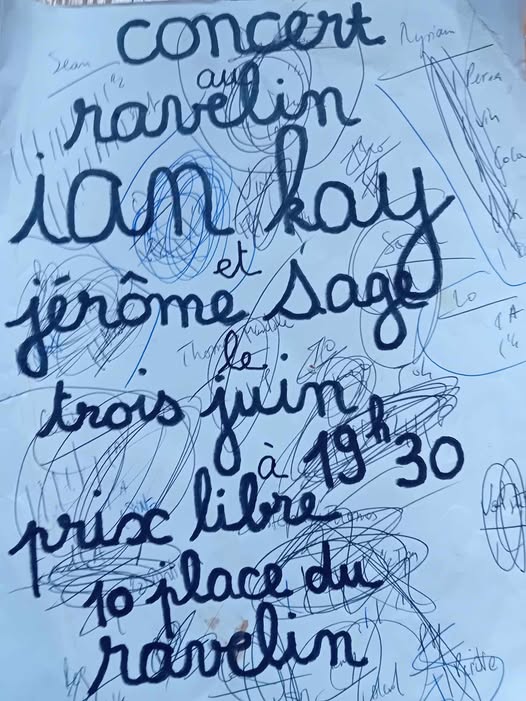 concert
au
ravelin
ian kay
et
jérôme sage
le
trois juin
à 19h30
prix libre
10 place du
ravelin